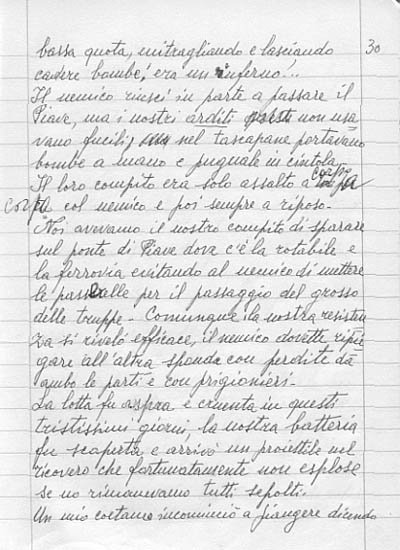 30
bassa quota, mitragliando e lasciando
cadere bombe! era un inferno!..
Il nemico riuscì in parte a passare il
Piave, ma i nostri arditi non usa
vano fucili, nel tascapane portavano
bombe a mano e pugnale in cintola
Il loro compito era solo assalto a corpo a
corpo col nemico e poi sempre a riposo.
Noi avevamo il nostro compito di sparare
sul ponte di Piave dove c'è la rotabile e
la ferrovia evitando al nemico di mettere
le passerelle per il passaggio del grosso
delle truppe - Comunque la nostra resisten
za si rivelò efficace, il nemico dovette ripie
gare all'altra sponda con perdite da
ambo le parti e con prigionieri -
La lotta fu aspra e cruenta in questi
tristissimi giorni, la nostra batteria
fu scoperta e arrivò un proiettile nel
ricovero che fortunatamente non esplose
se no rimanevamo tutti sepolti.
Un mio coetaneo incominciò a piangere dicendo